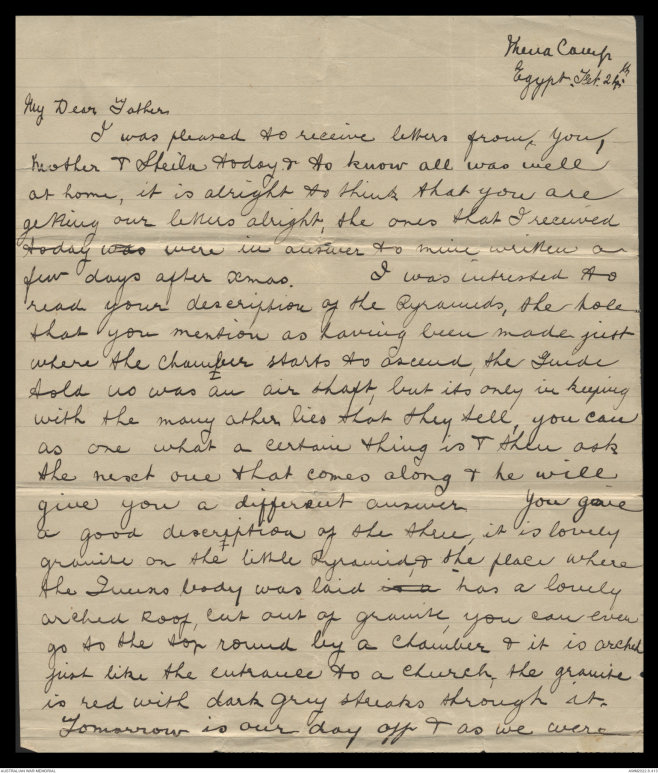 Mena Camp
Egypt. Feb. 24th
My Dear Father
I was pleased to receive letters from, you,
Mother & Sheila today & to know all was well
at home, it is alright to think that you are
getting our letters alright, the ones that I received
today was were in answer to mine written a
few days after xmas. I was intrested to
read your description of the Pyramids, the hole
that you mention as having been made just
where the chamber starts to ascend, the Guide
told us was an air shaft, but its only in keeping
with the many other lies that they tell, you can
as one what a certain thing is & then ask
the next one that comes along & he will
give you a different answer You gave
a good description of the then, it is lovely
granite on the little Pyramid, & the place where
the Queens body was laid is a has a lovely
arched roof, cut out of granite, you can even
go to the top round by a chamber & it is arched
just like the entrance to a church, the granite
is red with dark grey streaks through it.
Tomorrow is our day off & as we were
AUSTRALIAN WAR MEMORIAL